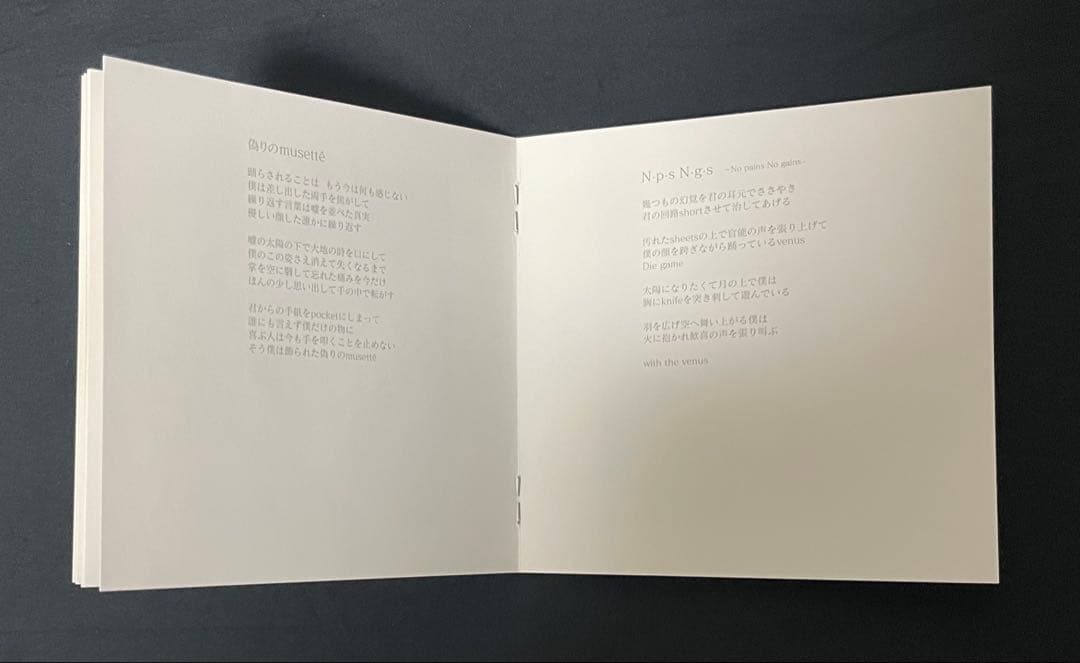 偽りのmusettë
踊らされることは もう今は何も感じない
僕は差し出した両手を焦がして
繰り返す言葉は嘘を並べた真実
優しい顔した誰かに繰り返す
嘘の太陽の下で大地の詩を口にして
僕のこの姿さえ消えて失くなるまで
掌を空に翳して忘れた痛みを今だけ
ほんの少し思い出して手の中で転がす
君からの手紙をpocketにしまって
誰にも言えず僕だけの物に
喜ぶ人は今も手を叩くことを止めない
そう僕は飾られた偽りのmusettë
N·p·s N·g·s ~No pains No gains~
幾つもの幻覚を君の耳元でささやき
君の回路shortさせて治してあげる
汚れたsheetsの上で官能の声を張り上げて
僕の顔を跨ぎながら踊っているvenus
Die game
太陽になりたくて月の上で僕は
胸にknifeを突き刺して遊んでいる
羽を広げ空へ舞い上がる僕は
火に抱かれ歓喜の声を張り叫ぶ
with the venus